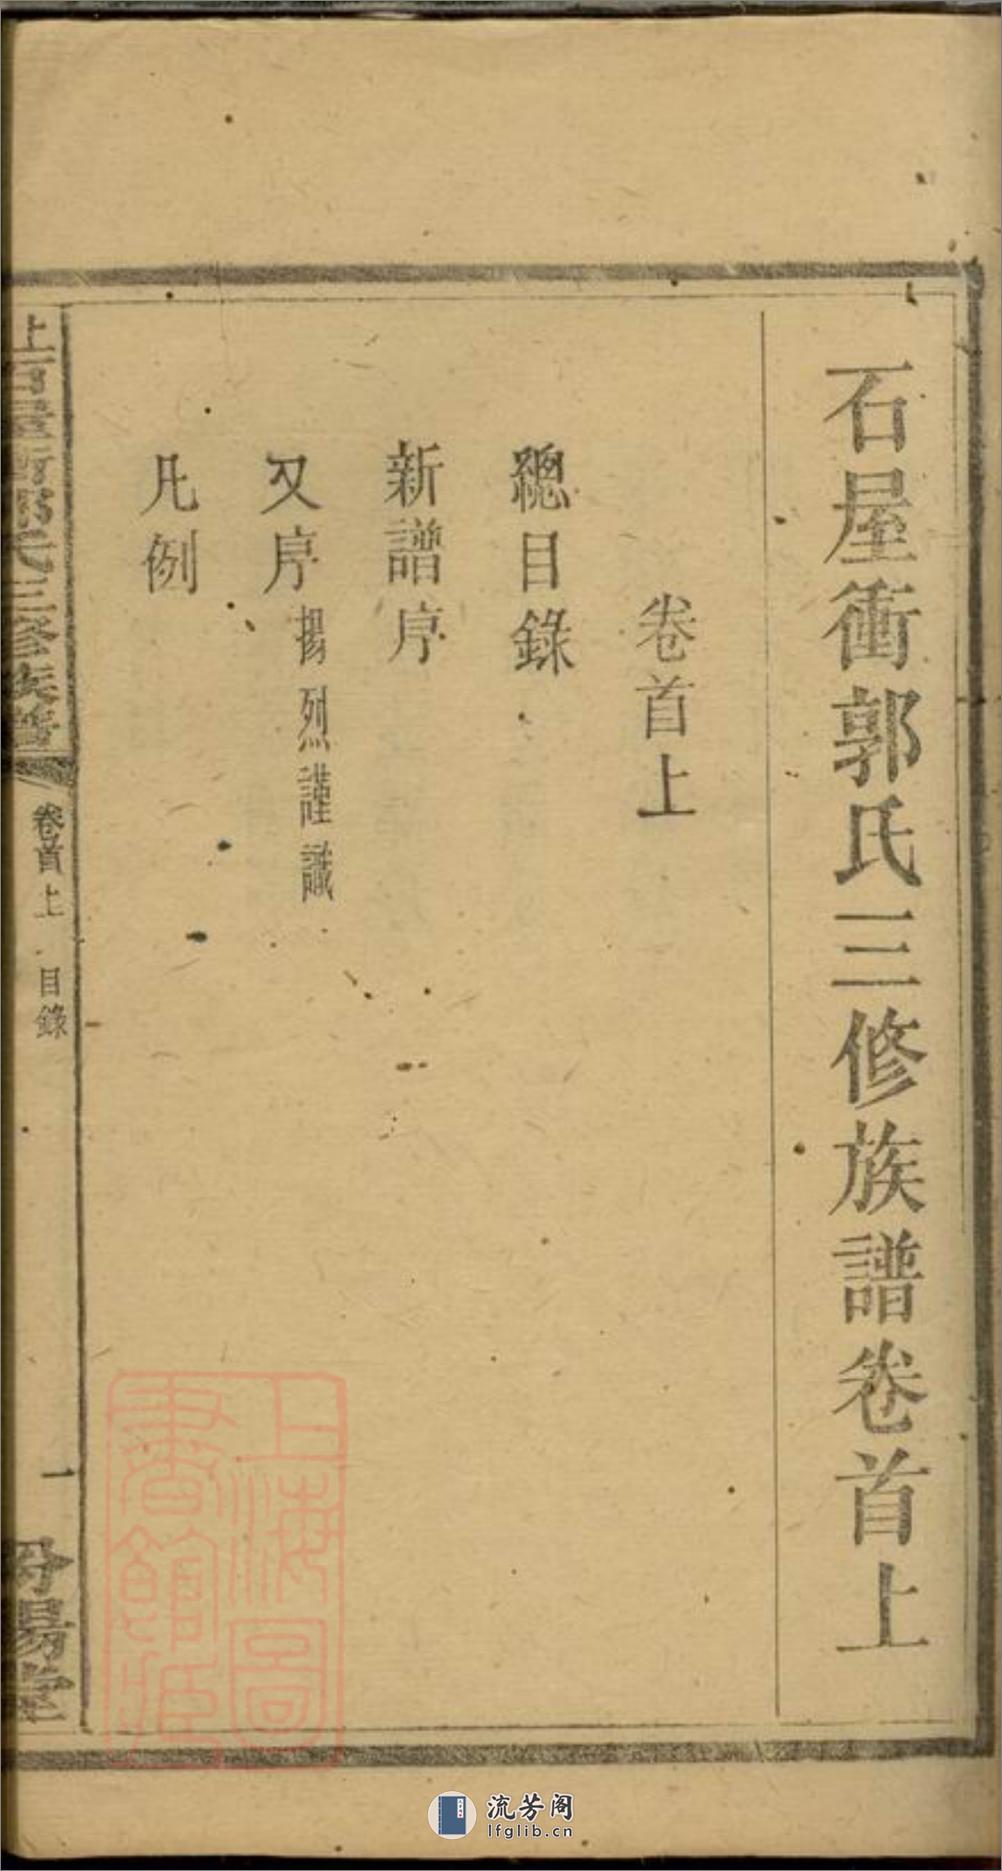 石屋衝郭氏三修族譜卷首上
卷首上
總目錄
新譜序
又序 揚烈謹識
凡例
上石屋衝郭氏三修族譜
卷首上 目錄
一
汾陽堂
上海圖書館藏
流芳阁
lfglib.cn